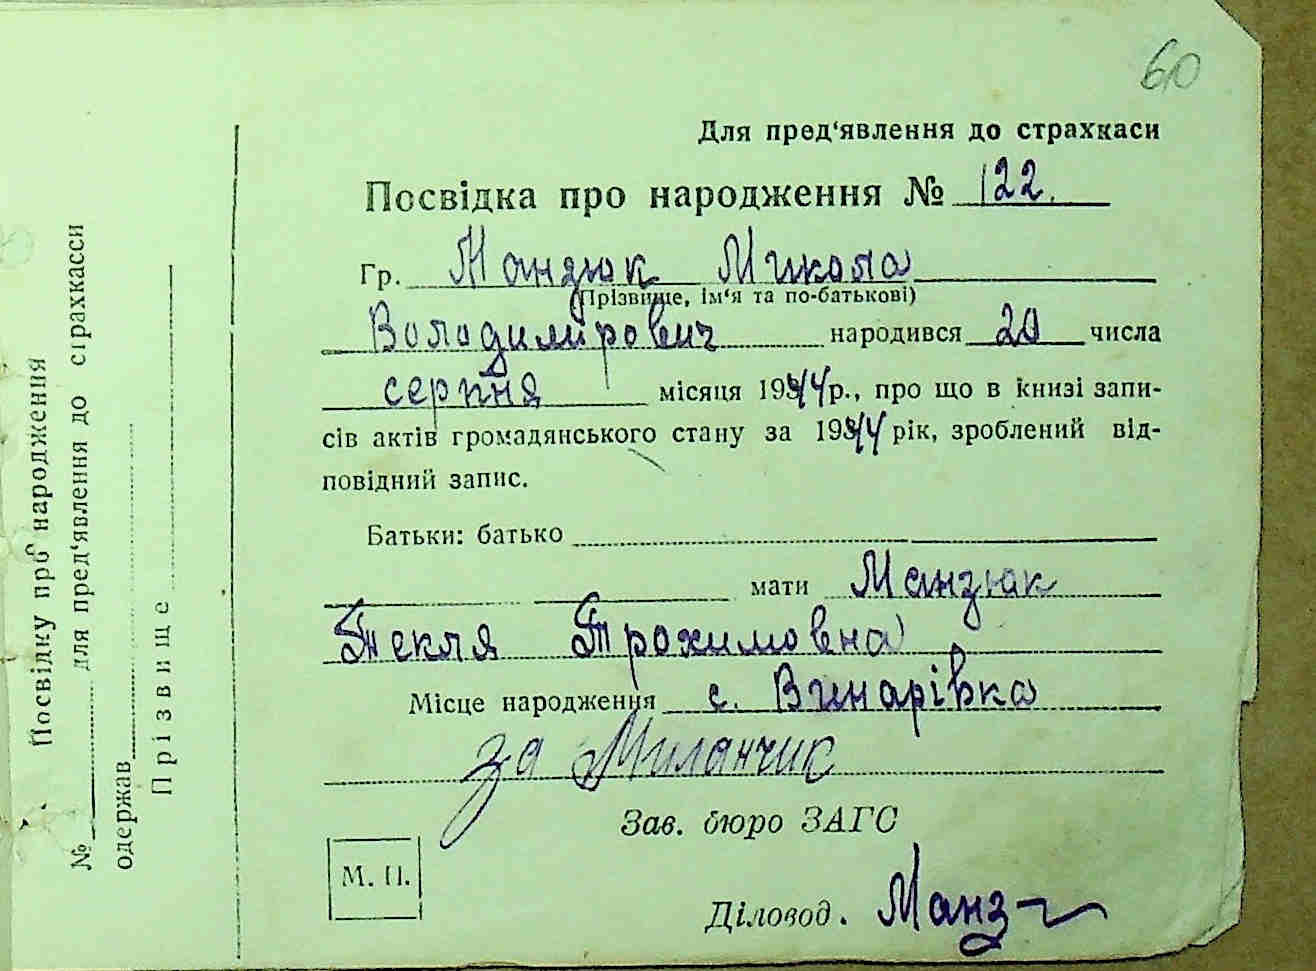 60
Для пред'явлення до страхкаси
Посвідка про народження № 122.
Гр. Манзюк Микола
(Прізвище, ім'я та по-батькові)
Володимирович народився 20 числа
серпня місяця 1944р., про що в книзі запи-
сів актів громадянського стану за 1944 рік, зроблений від-
повідний запис.
Батьки: батько
мати Манзюк
Текля Трохимовна
Місце народження с. Винарівка
за Миланчик
Зав. бюро ЗАГС
М. П.
Діловод. Манз
Посвідку про народження
№ для пред'явлення до страхкасси
одержав
Прізвище